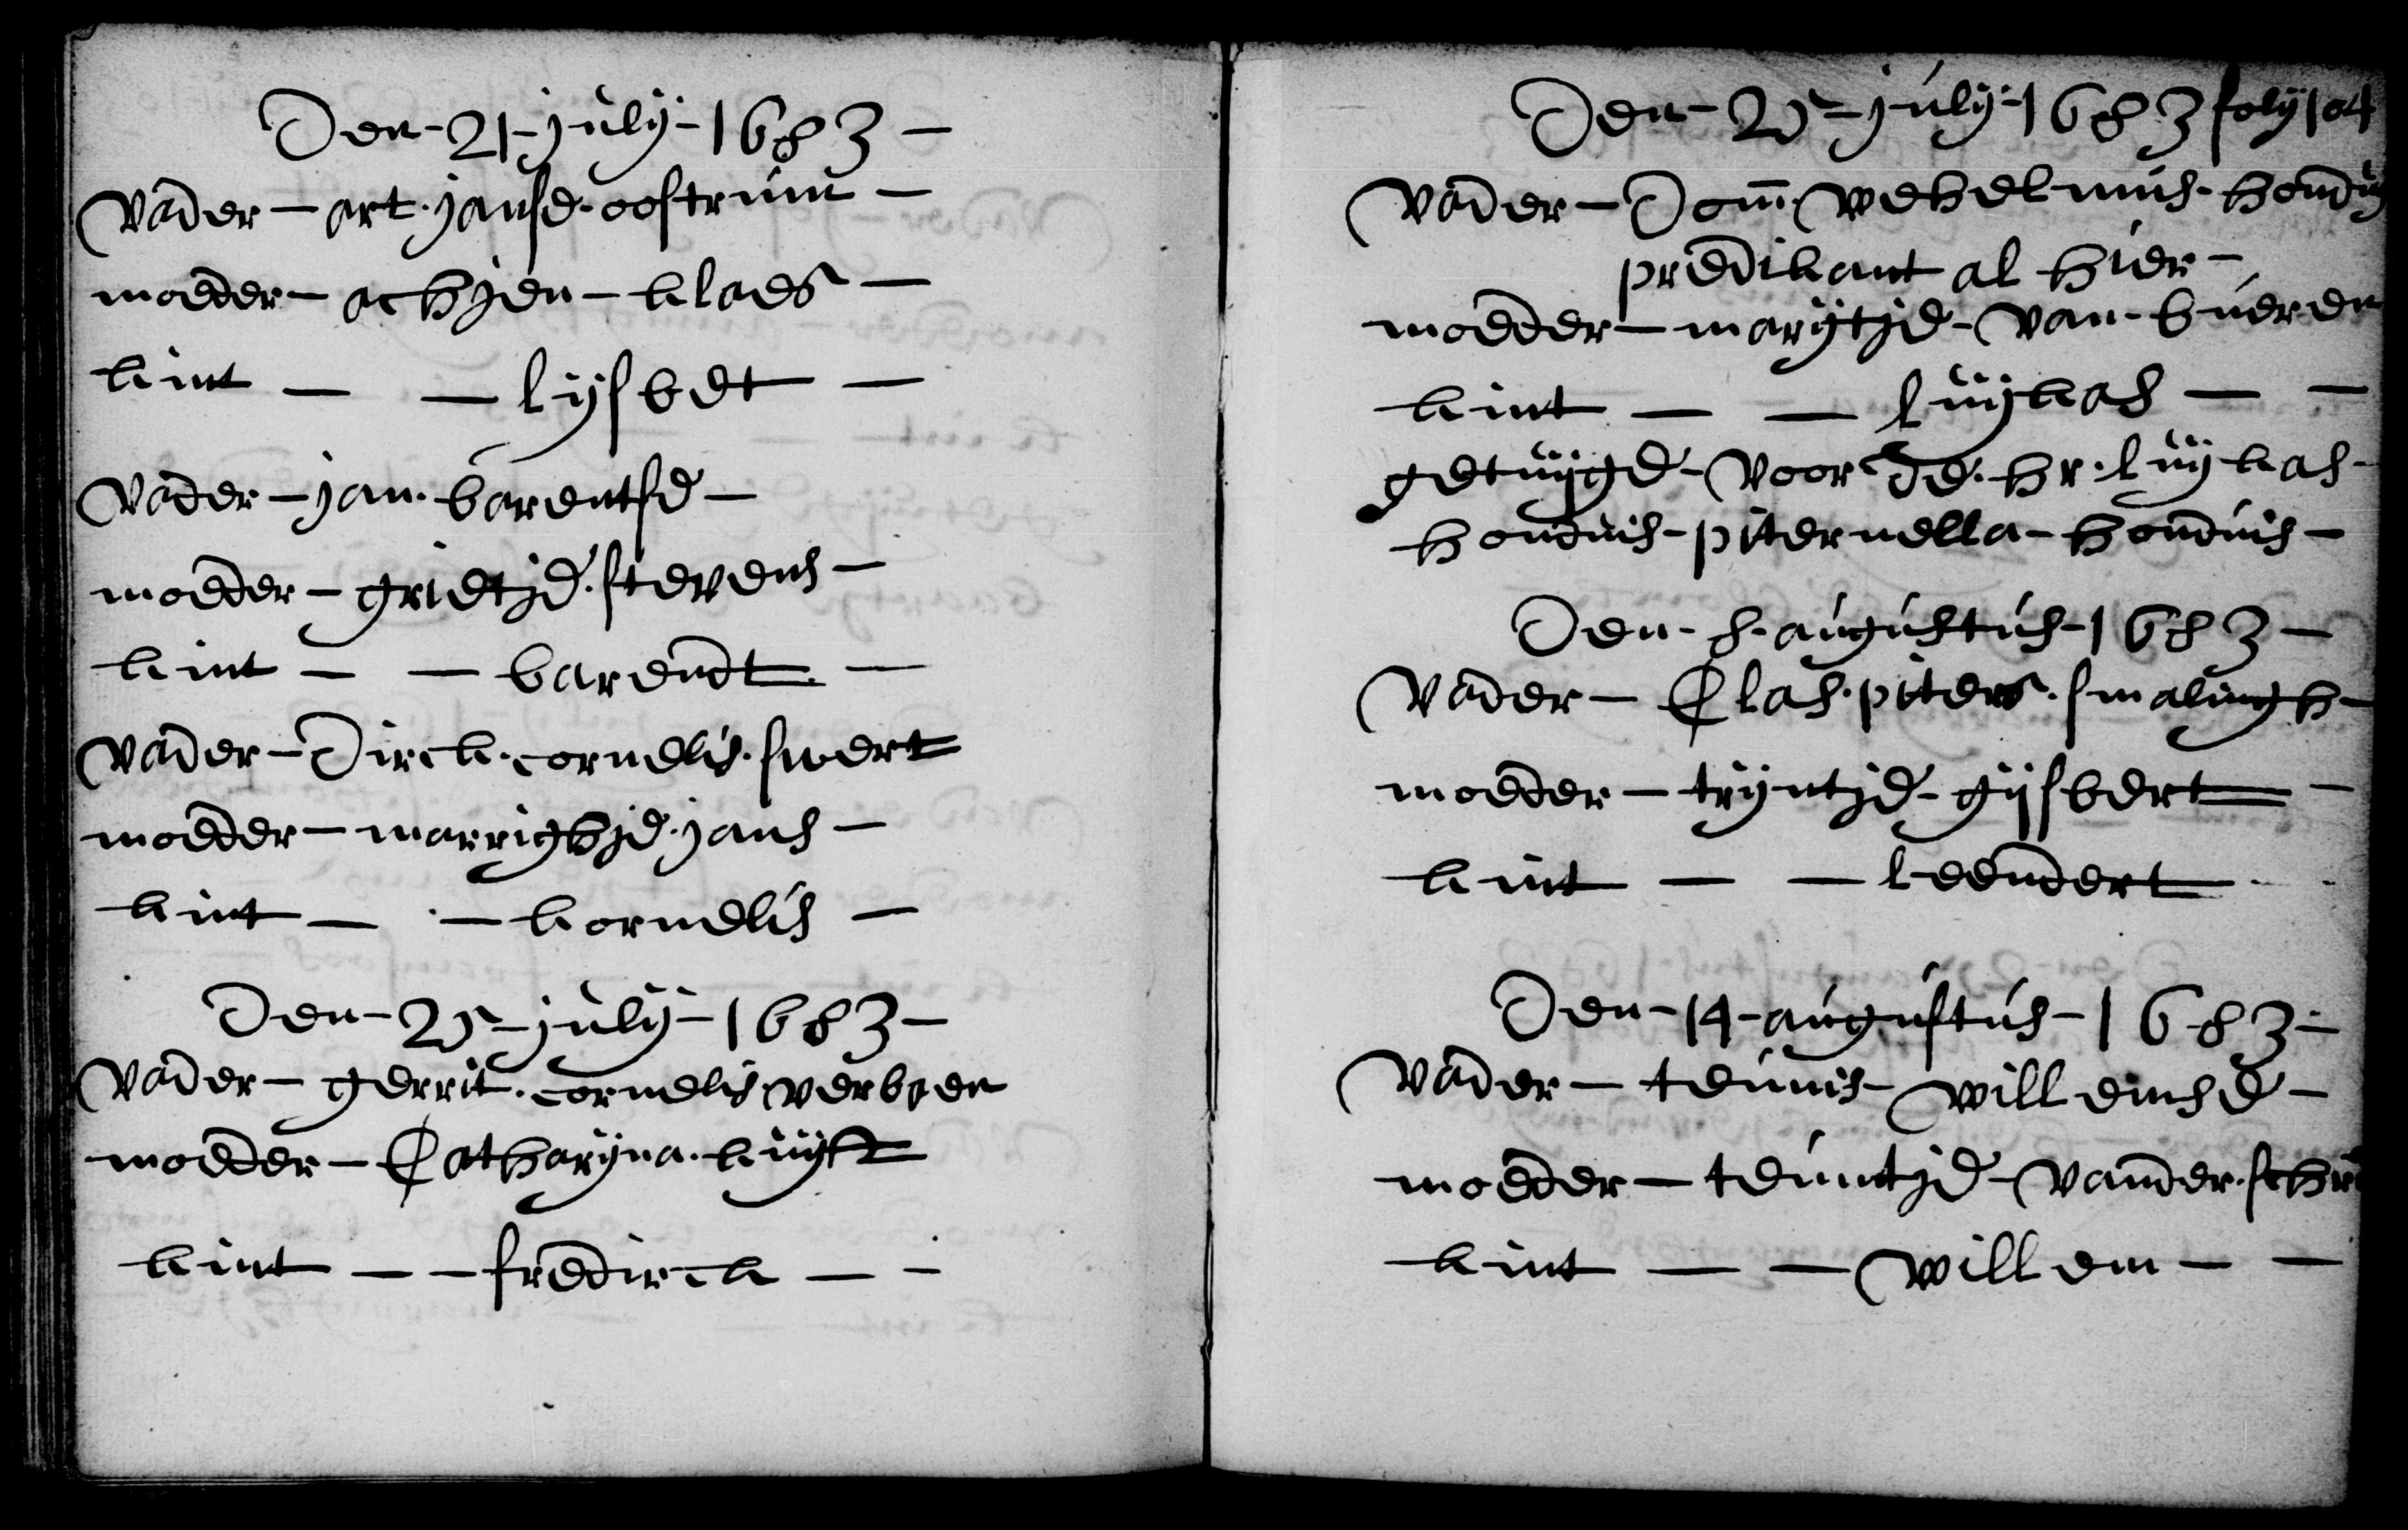 Den - 21 - july - 1683 -
Vader - art. janse. oostrum -
moeder - achjen - klaes -
kint - - lijsbet -
Vader - jan. barentse -
moeder - grietje. stevens -
kint - - barendt -
Vader - Dirck. cornelis. swert
moeder - marrighje. jans -
kint - - kornelis -
Den - 25 - july - 1683 -
Vader - gerrit. cornelis verboen
moeder - Catharijna. kuijf
kint - - fredirck - -
Den - 25 - july - 1683 foly 104
Vader - Dom. Wehelmus - hondius
predikant al hier -
moeder - marijtje - Van - buerden
kint - - luijkas - -
getuijge - Voor de. hr. luijkas -
hondius - piternella - hondius -
Den - 8 - augustus - 1683 -
Vader - Clas. piters. smalingh -
moeder - trijntje - gijsbert -
kint - - leendert
Den - 14 - augustus - 1683 -
Vader - teunis - willemse -
moeder - teuntje - Vander.
kint - - Willem - -